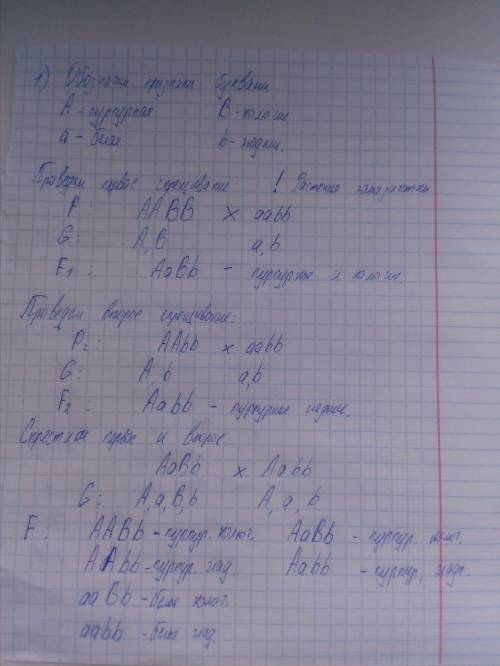 1) Обозначим признаки буквами
A - пурпурная B - колючие
a - белая b - гладкие.
Проведем первое скрещивание: ! Растения гомозиготны
P: AABB x aabb
G: A, B a, b
F1: AaBb - пурпурные и колючие.
Проведем второе скрещивание:
P2: AAbb x aabb
G: A, b a, b
F2: Aabb - пурпурные гладкие.
Скрестим первое и второе
AaBb x Aabb
G: A, a, B, b A, a, b
F: AABb - пурпур. колюч. AaBb - пурпур. колюч.
AAbb - пурпур. глад. Aabb - пурпур, глад.
aaBb - белые колюч.
aabb - белые глад.